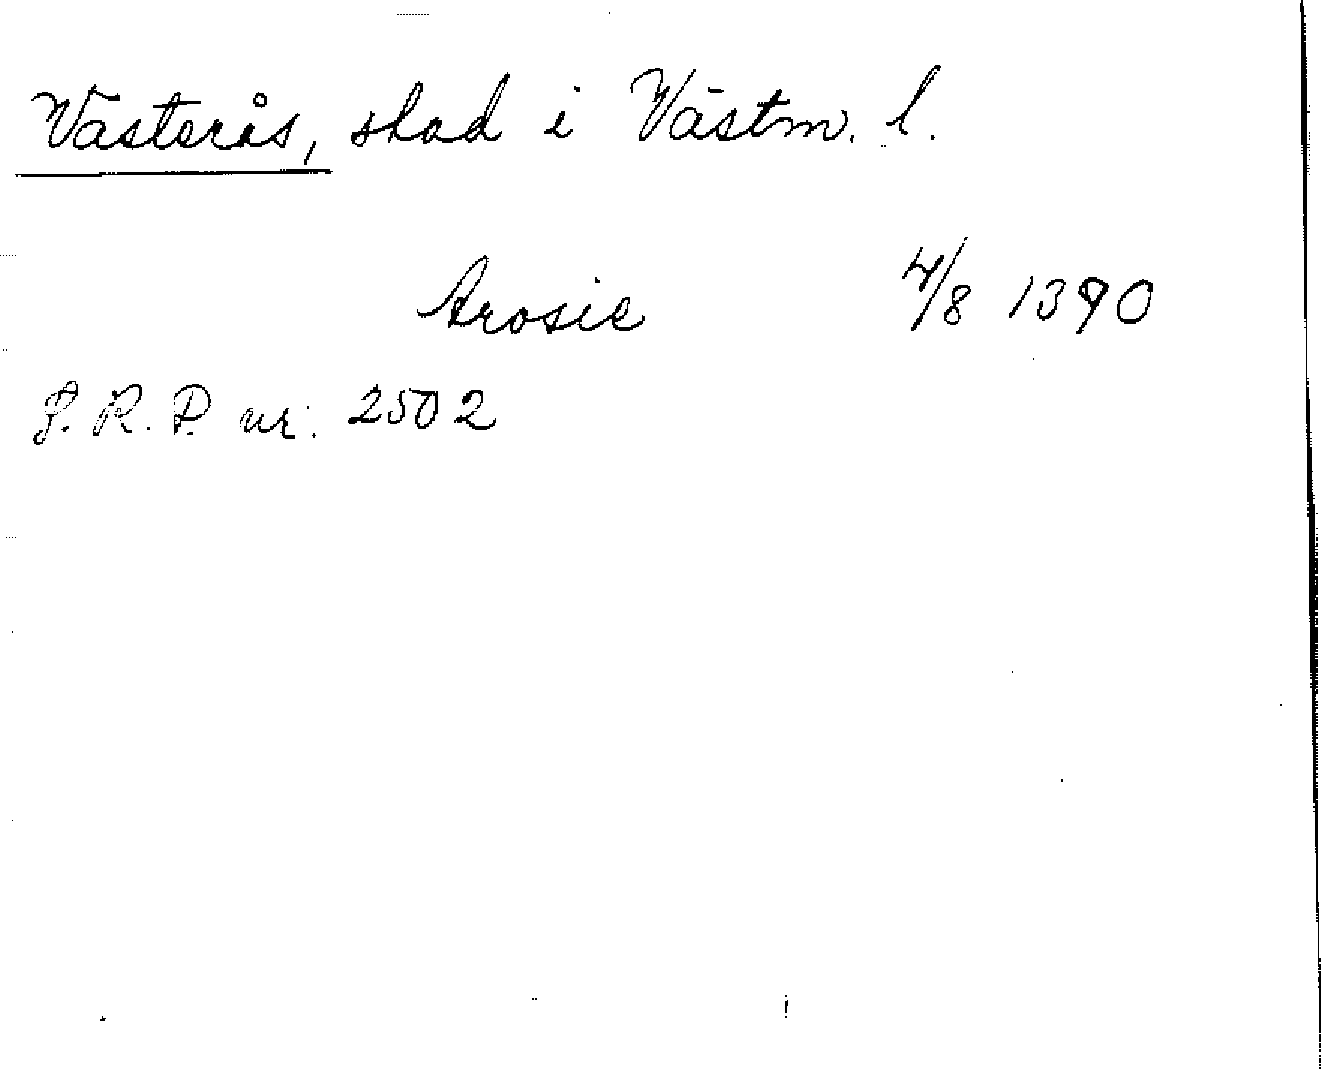 Västerås, stad i Västm. l.
Arosie 4/8 1390
S.R.P. nr. 2502